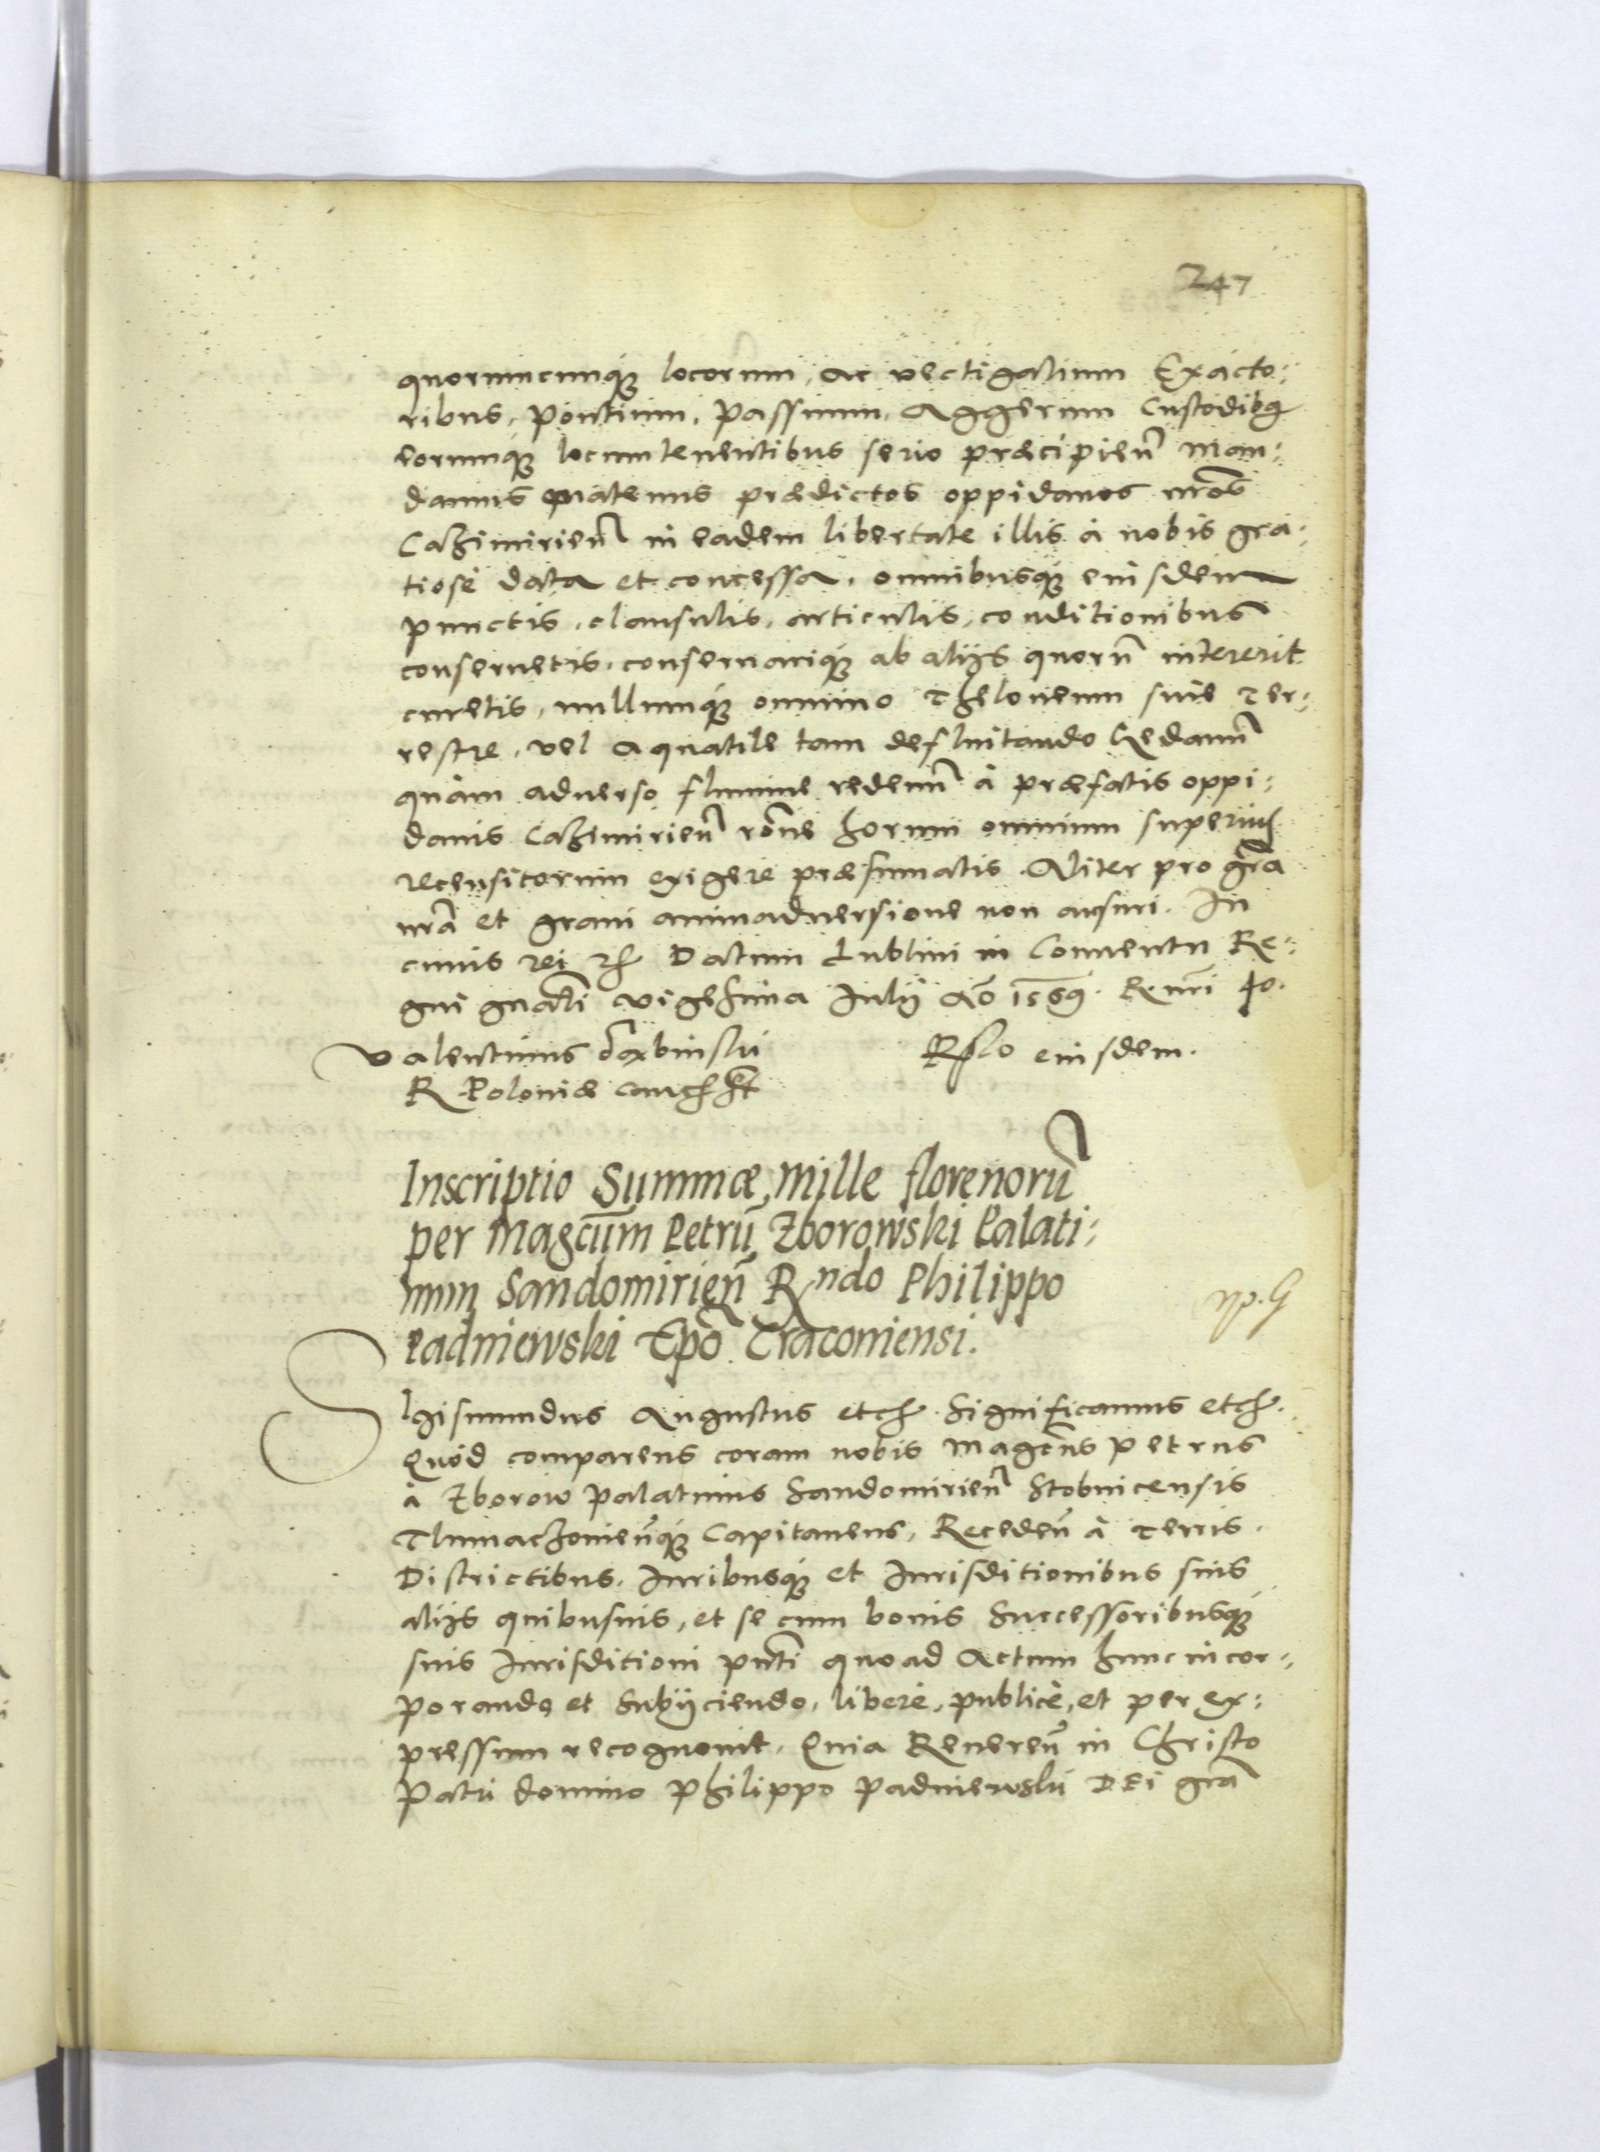 247
quorumcunque locorum, ac vectigalium Exacto:
ribus, Pontium, Passuum, Aggerum Custodibus
eorumque locumtenentibus serio præcipien̄ man:
damus quatenus prædictos oppidanos nr̄os
Cazimirien̄ in eadem libertate illis à nobis gra:
tiosè data et concessa, omnibusque eiusdem
punctis, clausulis, articulis, conditionibus
conseruetis, conseruarique ab alijs quorū intererit
curetis, nullumque omnino Theloneum siue Ter:
restre, vel aquatile tam defluitando Gedanū
quàm aduerso flumine redeun̄ à præfatis oppi:
danis Cazimirien̄ rōne horum omnium superius
recensitorum exigere præsumatis. Aliter pro grā
nrā et graui animaduersione non ausuri. In
cuius rei &c Datum Lublini in Conuentu Re:
gni gnāli vigesima Julij Aō 1569. R. nr̄i 40.
Valentinus Dābinski
R. Poloniæ canc:
Rlo eiusdem.
Inscriptio Summæ Mille florenorū
per Magcūm Petrū Zborowski Palati:
num Sandomirien̄ Rndo Philippo
Padniewski Epō Craconiensi.
Sigismundus Augustus etc. Significamus etc.
Quòd comparens coram nobis Magcūs Petrus
à Zborow Palatinus Sandomirien̄ Stobnicensis
Tlumaczouien̄que Capitaneus, Receden̄ à Terris.
Districtibus, Iuribusque et Iurisditionibus suis
alijs quibusuis, et se cum bonis Successoribusque
suis Iurisditioni pn̄ti quoad Actum hunc incor:
porando et subijciendo, liberè, publicè, et per ex:
pressum recognouit, Quia Reueren̄ in Christo
Patri domino Philippo Padniewski DEi grā